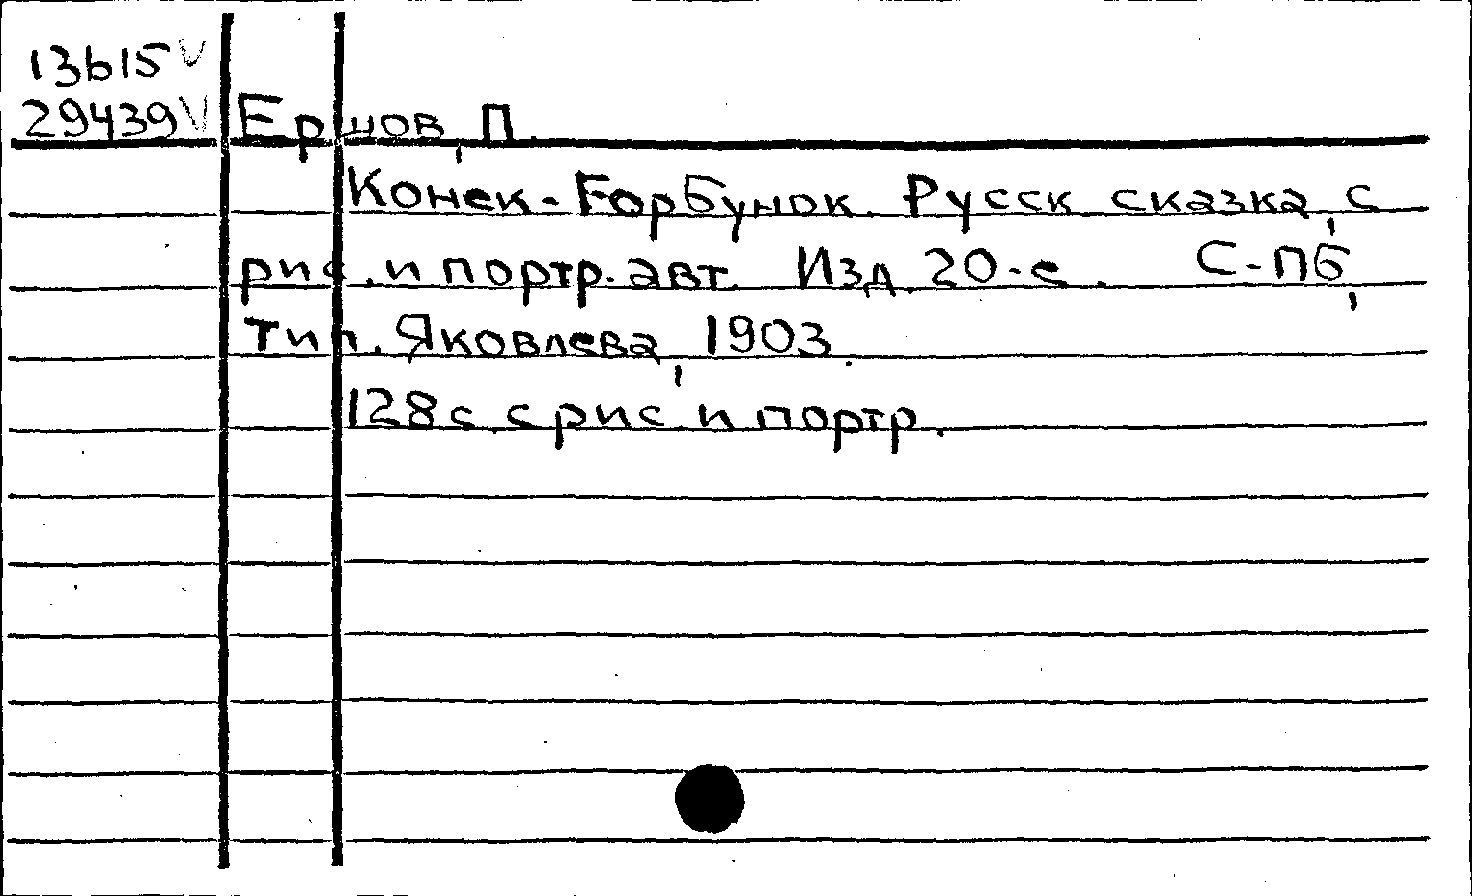 13b15 V
29439 V Ершов, П.
Конек-Горбунок. Русск сказка, с
рис. и портр. авт. Изд. 20-е. С-Пб,
Тип. Яковлева, 1903.
128 с. с рис. и портр.